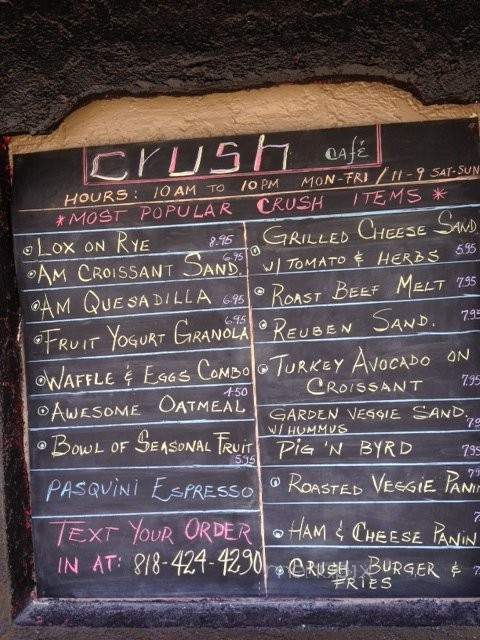 crush café
HOURS: 10 AM TO 10 PM MON-FRI / 11-9 SAT-SUN
*MOST POPULAR CRUSH ITEMS*
LOX ON RYE 8.95
AM CROISSANT SAND. 6.95
AM QUESADILLA 6.95
FRUIT YOGURT GRANOLA 6.95
WAFFLE & EGGS COMBO
AWESOME OATMEAL 4.50
BOWL OF SEASONAL FRUIT 5.95
PASQUINI ESPRESSO
TEXT YOUR ORDER
IN AT: 818-424-4290
GRILLED CHEESE SAND
W/ TOMATO & HERBS 5.95
ROAST BEEF MELT 7.95
REUBEN SAND. 7.95
TURKEY AVOCADO ON
CROISSANT 7.95
GARDEN VEGGIE SAND.
W/ HUMMUS
PIG 'N BYRD 7.95
ROASTED VEGGIE PANIN
HAM & CHEESE PANIN
CRUSH BURGER &
FRIES